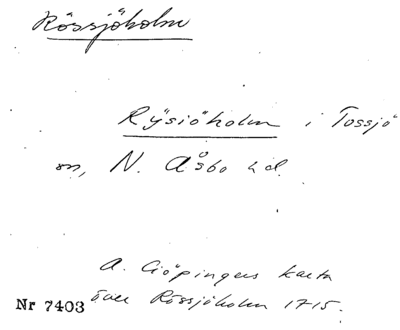 Rössjöholm
Rÿsiöholm i Tossjö
sn, N. Åsbo hd.
A. Giöpingers karta
över Rössjöholm 1715.
Nr 7403